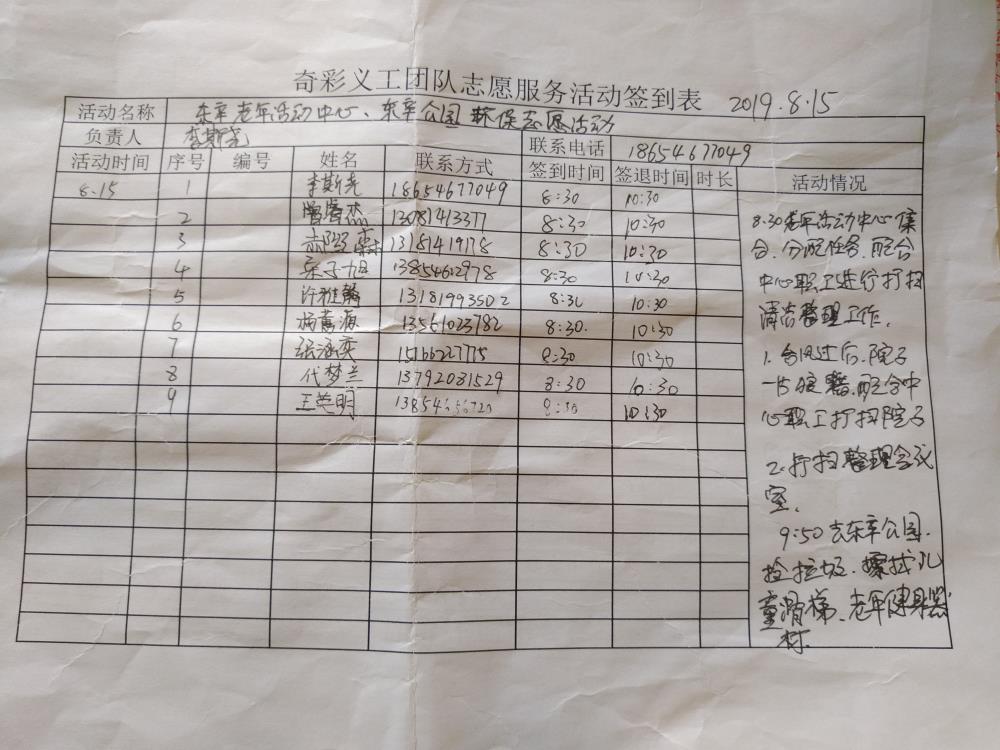 奇彩义工团队志愿服务活动签到表 2019.8.15
活动名称 东辛老年活动中心、东辛公园环保志愿活动
负责人 李斯尧 联系电话 18654677049
活动时间 序号 编号 姓名 联系方式 签到时间 签退时间 时长 活动情况
8.15 1 李斯尧 18654677049 8:30 10:30
2 13081413377 8:30 10:30
3 13181419178 8:30 10:30
4 13854612978 8:30 10:30
5 许雅 13181993502 8:30 10:30
6 杨 海 13561023782 8:30. 10:30
7 张涵奕 15166227715 8:30 10:30
8 代梦兰 13792081529 8:30 10:30
9 王英明 13854656720 8:30 10:30
8:30老年活动中心集
合、分配任务、配合
中心职工进行打扫
清洁整理工作.
1. 台风过后、院子
一片狼藉.配合中
心职工打扫院子
2. 打扫整理会议
室.
9:50去东辛公园.
捡垃圾.擦拭儿
童滑梯、老年健身器
材.